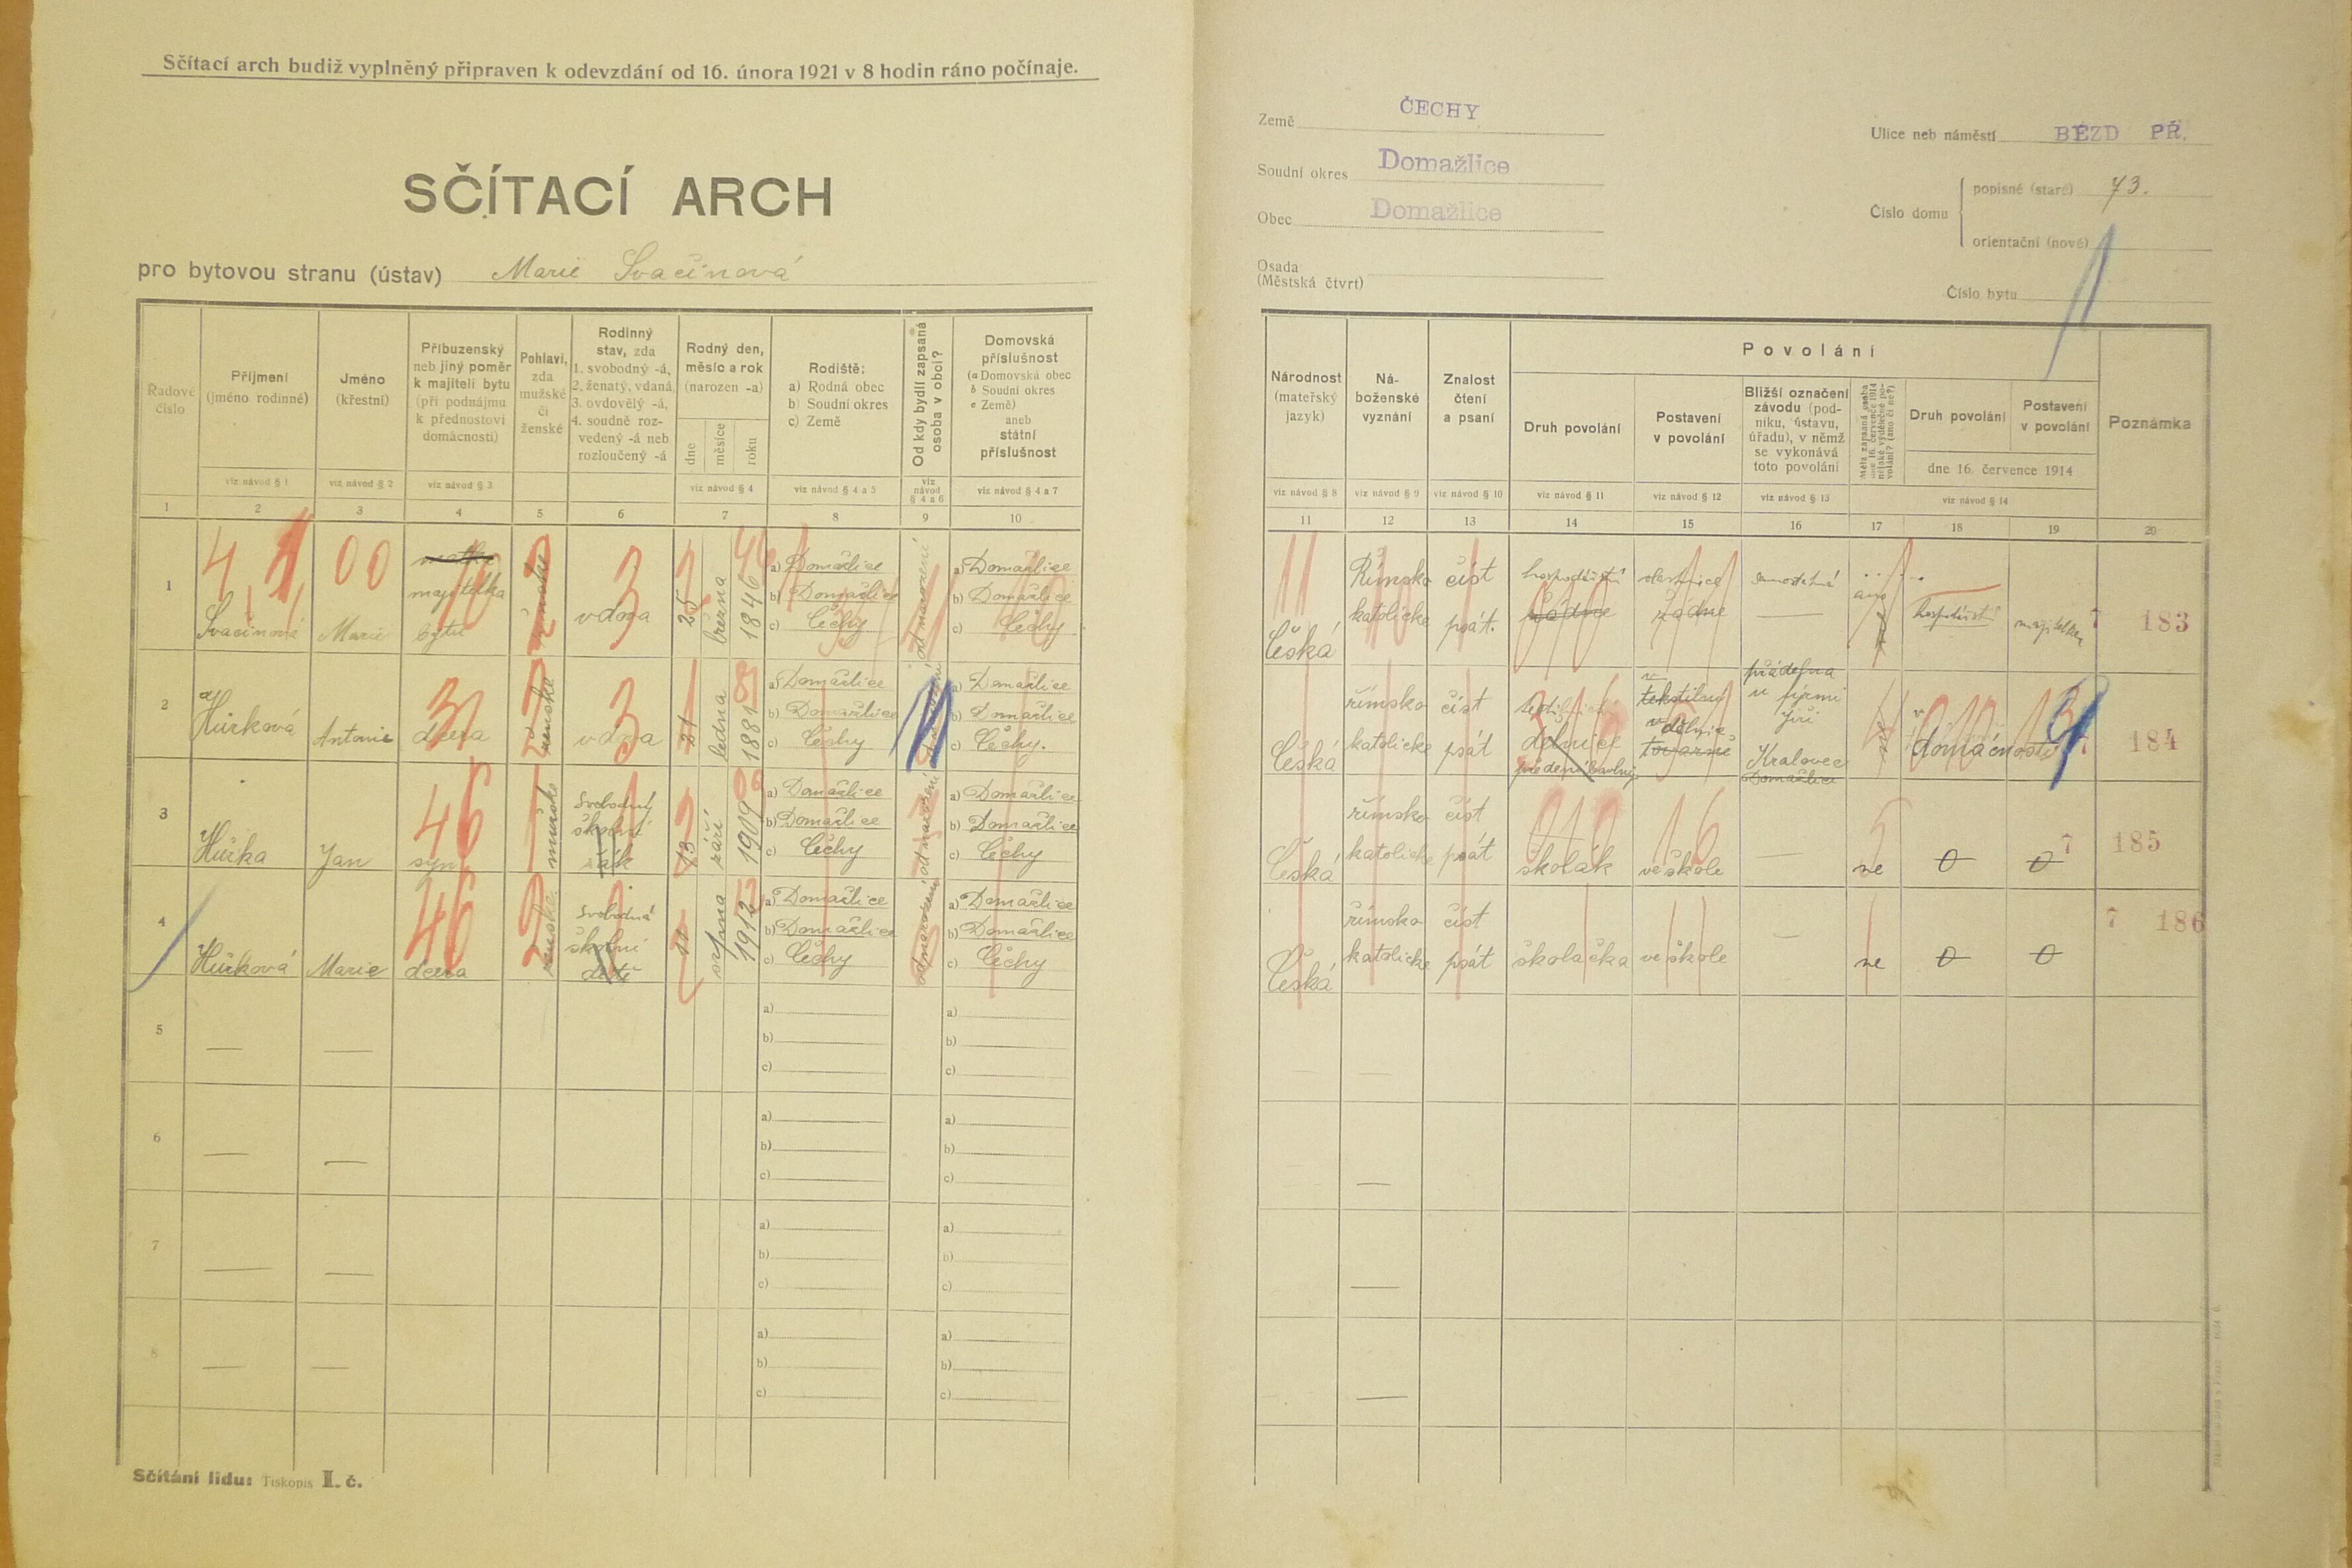 Sčítací arch budiž vyplněný připraven k odevzdání od 16. února 1921 v 8 hodin ráno počínaje.
SČÍTACÍ ARCH
pro bytovou stranu (ústav) Marie Svačinová
Země ČECHY
Soudní okres Domažlice
Obec Domažlice
Osada
(Městská čtvrt)
Ulice neb náměstí BEZD PŘ.
Číslo domu
popisné (staré) 73.
orientační (nové)
Číslo bytu
Řadové číslo
Příjmení (jméno rodinné)
Jméno (křestní)
Příbuzenský neb jiný poměr k majiteli bytu (při podnájmu k přednostovi domácnosti)
Pohlaví, zda mužské či ženské
Rodinný stav, zda 1. svobodný -á, 2. ženatý, vdaná, 3. ovdovělý -á, 4. soudně rozvedený -á neb rozloučený -á
Rodný den, měsíc a rok (narozen -a)
dne měsíce roku
Rodiště: a) Rodná obec b) Soudní okres c) Země
Od kdy bydlí zapsaná osoba v obci?
Domovská příslušnost (a Domovská obec b Soudní okres c Země) aneb státní příslušnost
viz návod § 1 viz návod § 2 viz návod § 3 viz návod § 4 viz návod § 4 a 5 viz návod § 4 a 6 viz návod § 4 a 7
1 2 3 4 5 6 7 8 9 10
Národnost (mateřský jazyk)
Náboženské vyznání
Znalost čtení a psaní
Povolání
Druh povolání
Postavení v povolání
Bližší označení závodu (podniku, ústavu, úřadu), v němž se vykonává toto povolání
Měla zapsaná osoba dne 16. července 1914 nějaké výdělečné povolání? (ano či ne?)
Druh povolání
Postavení v povolání
dne 16. července 1914
Poznámka
viz návod § 8 viz návod § 9 viz návod § 10 viz návod § 11 viz návod § 12 viz návod § 13 viz návod § 14
11 12 13 14 15 16 17 18 19 20
1 Svačinová Marie majitelka bytu ženské vdova 25 března 1846
a) Domažlice
b) Domažlice
c) Čechy
od narození
a) Domažlice
b) Domažlice
c) Čechy
Česká Římsko katolické číst psát. hospodářství žádné vlastnice žádné samostatná — ano ne hospodářství majitelka 7 183
2 Hürková Antonie dcera ženské vdova 21 ledna 1881
a) Domažlice
b) Domažlice
c) Čechy
a) Domažlice
b) Domažlice
c) Čechy.
Česká římsko katolické číst psát dělnice v tekstilní dělnice továrně přádelna u firmi Jiří Kralovec Domažlice ne v domácnosti 7 184
3 Hürka Jan syn mužské svobodný školní žák 13 září 1909
a) Domažlice
b) Domažlice
c) Čechy
od narození
a) Domažlice
b) Domažlice
c) Čechy
Česká římsko katolické číst psát školák ve škole — ne 0 0 7 185
4 Hürková Marie dcera ženské svobodná školní dítě 11 srpna 1912
a) Domažlice
b) Domažlice
c) Čechy
od narození
a) Domažlice
b) Domažlice
c) Čechy
Česká římsko katolické číst psát školačka ve škole — ne 0 0 7 186
5 — —
a) a)
b) b)
c) c)
6 — —
a) a)
b) b)
c) c)
7 — —
a) a)
b) b)
c) c)
8 — —
a) a)
b) b)
c) c)
Sčítání lidu: Tiskopis I. č.